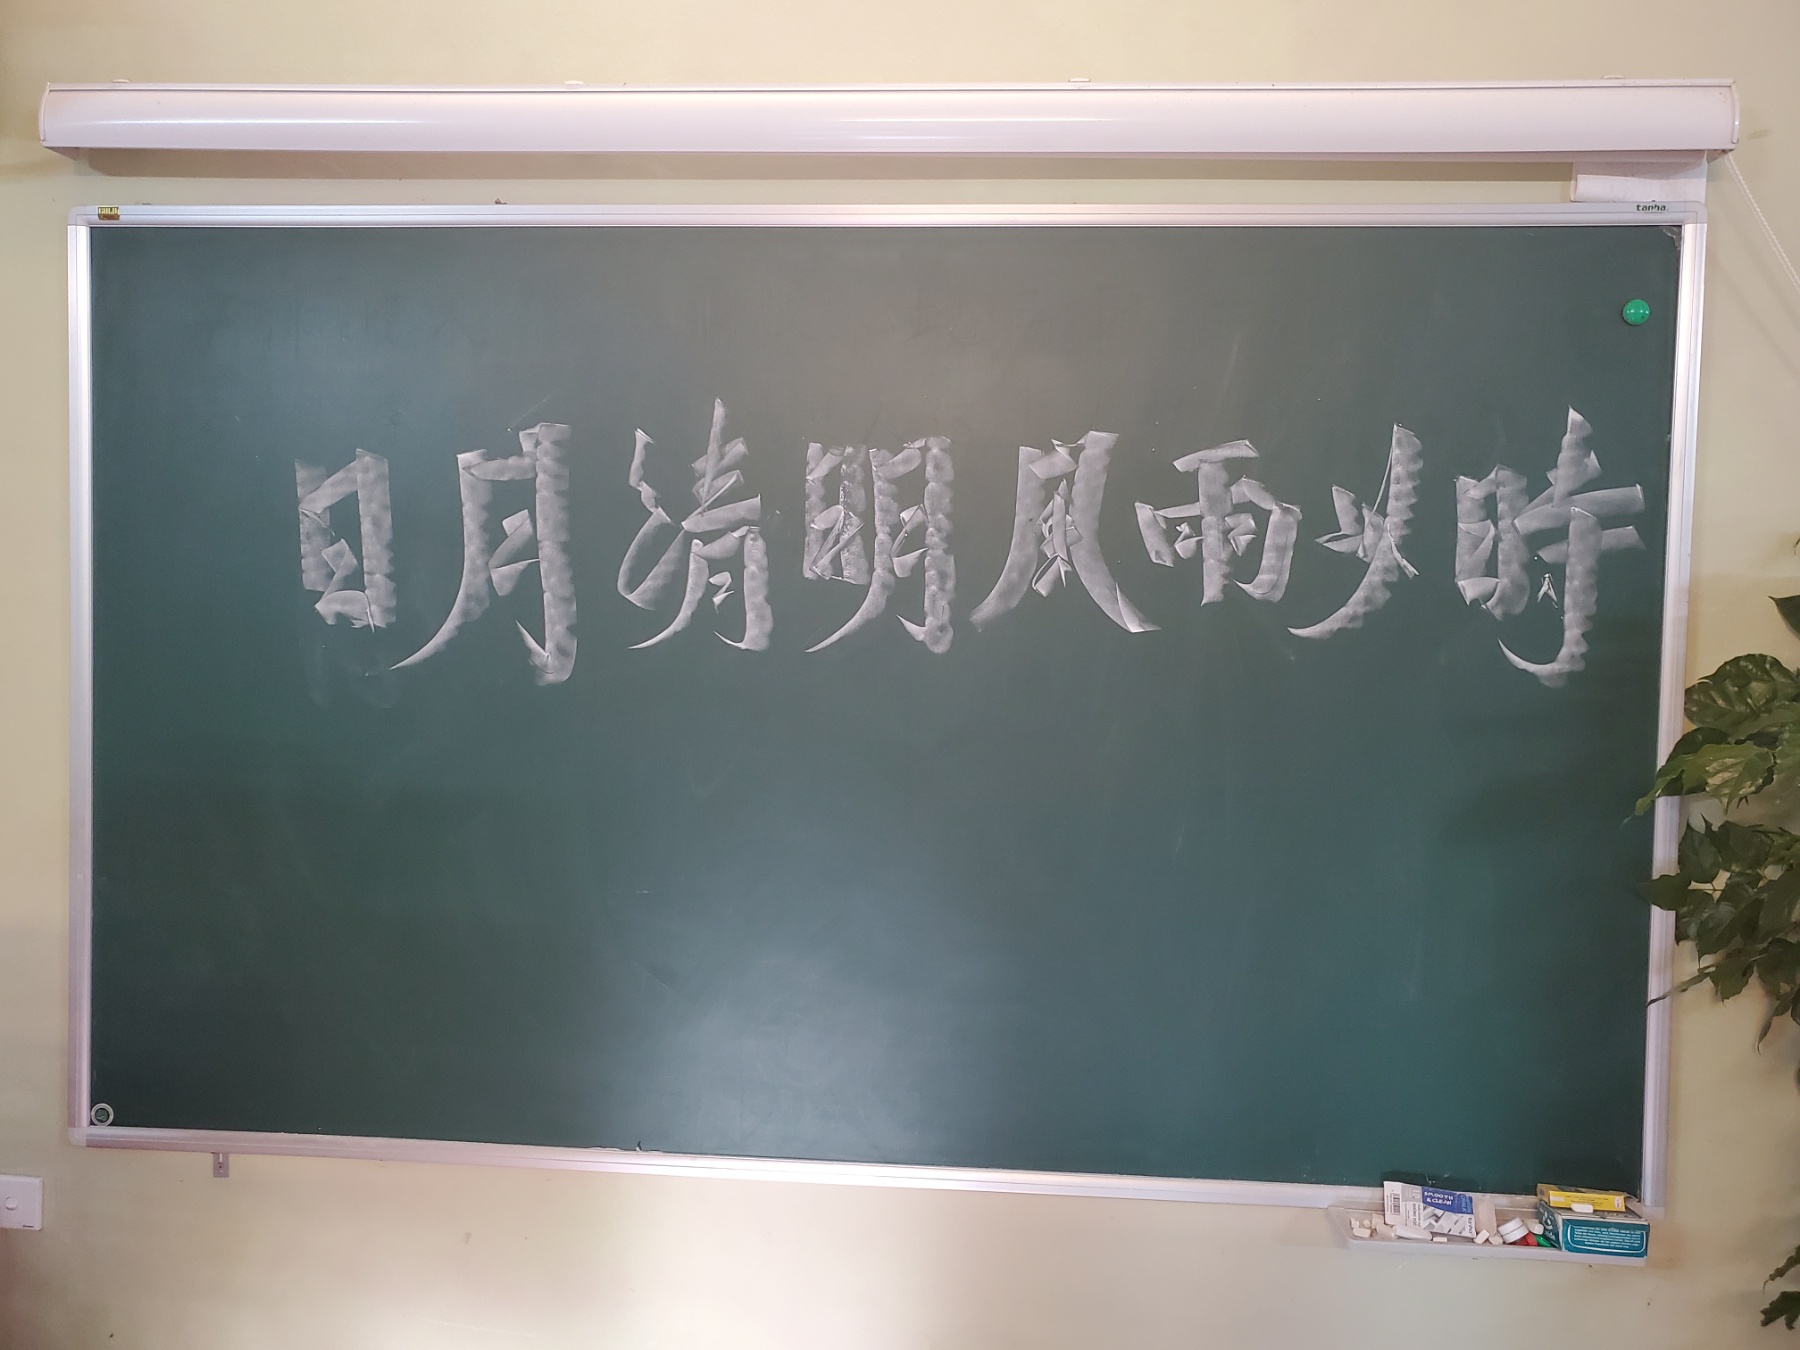 tanha.
日月清明風雨以時
SMOOTH
& CLEAN